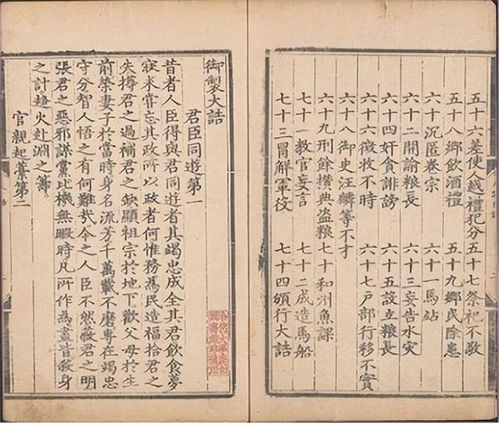 五十六差使人越禮犯分 五十七祭祀不敬
五十八鄉飲酒禮 五十九鄉民除患
六十沉匿卷宗 六十一馬站
六十二開諭糧長 六十三妄告水災
六十四奸貪誹謗 六十五設立糧長
六十六徵收不時 六十七戶部行移不實
六十八御史汪麟等不才
六十九刑餘攢典盜粮 七十和州魚課
七十一教官妄言 七十二成造馬船
七十三冒解軍役 七十四頒行大誥
御製大誥
君臣同遊第一
昔者人臣得與君同遊者其竭忠成全其君飲食夢
寐未嘗忘其政所以政者何惟務為民造福拾君之
失撙君之過補君之缺顯祖宗於地下歡父母於生
前榮妻子於當時身名流芳千萬載不磨專在竭忠
守分智人悟之有何難哉今之人臣不然蔽君之明
張君之惡邪謀黨比機無暇時凡所作為盡皆殺身
之計趨火赴淵之籌
官親起藁第二